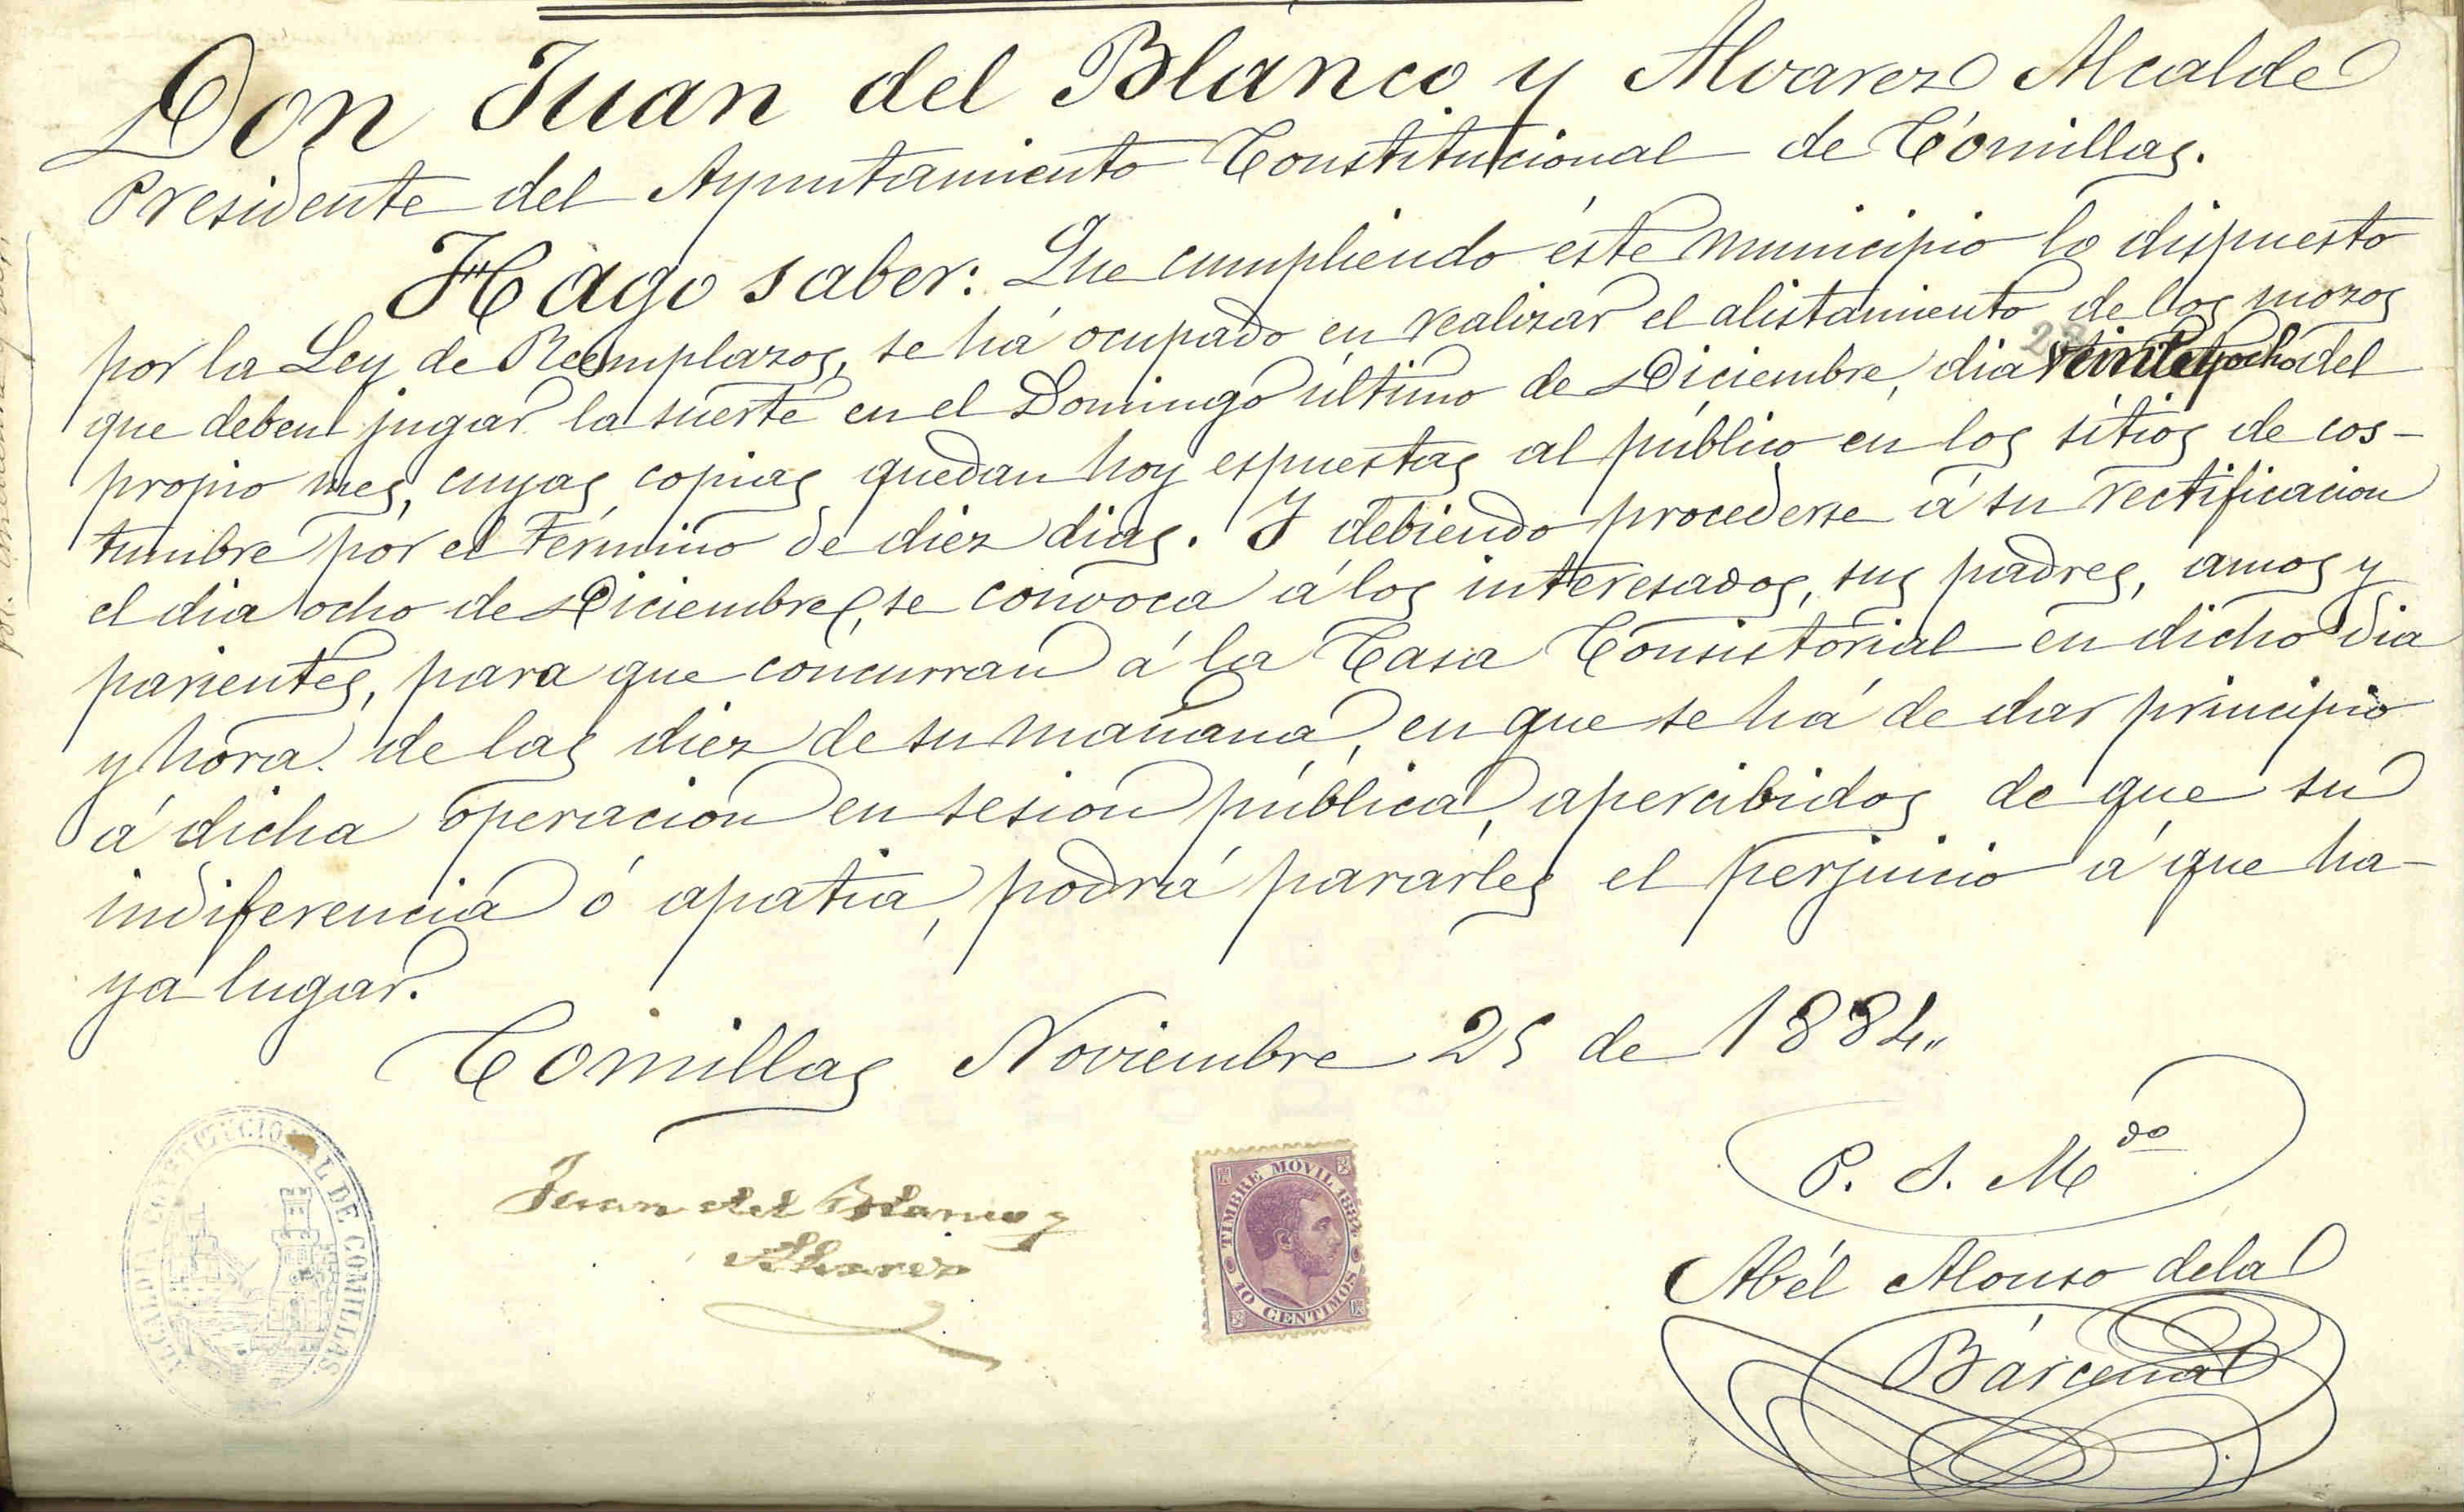 Don Juan del Blanco y Alvarez Alcalde
Presidente del Ayuntamiento Constitucional de Comillas.
Hago saber: Que cumpliendo éste municipio lo dispuesto
por la Ley de Reemplazos, se há ocupado en realizar el alistamiento de los mozos
que deben jugar la suerte en el Domingo último de Diciembre, dia veinte y ocho del
28
propio mes, cuyas copias quedan hoy espuestas al público en los sitios de cos-
tumbre por el término de diez dias. Y debiendo procederse á su rectificacion
el dia ocho de Diciembre, se convoca á los interesados, sus padres, amos y
parientes, para que concurran á la Casa Consistorial en dicho dia
y hora de las diez de su mañana, en que se há de dar principio
á dicha operacion en sesion pública, apercibidos de que su
indiferencia ó apatia, podrá pararles el perjuicio á que ha-
ya lugar.
Comillas Noviembre 25 de 1884.
ALCALDIA CONSTITUCIONAL DE COMILLAS
Juan del Blanco y
Alvarez
TIMBRE MOVIL 1884
10 CENTIMOS
P. S. Mdo
Abél Alonso de la
Bárcena